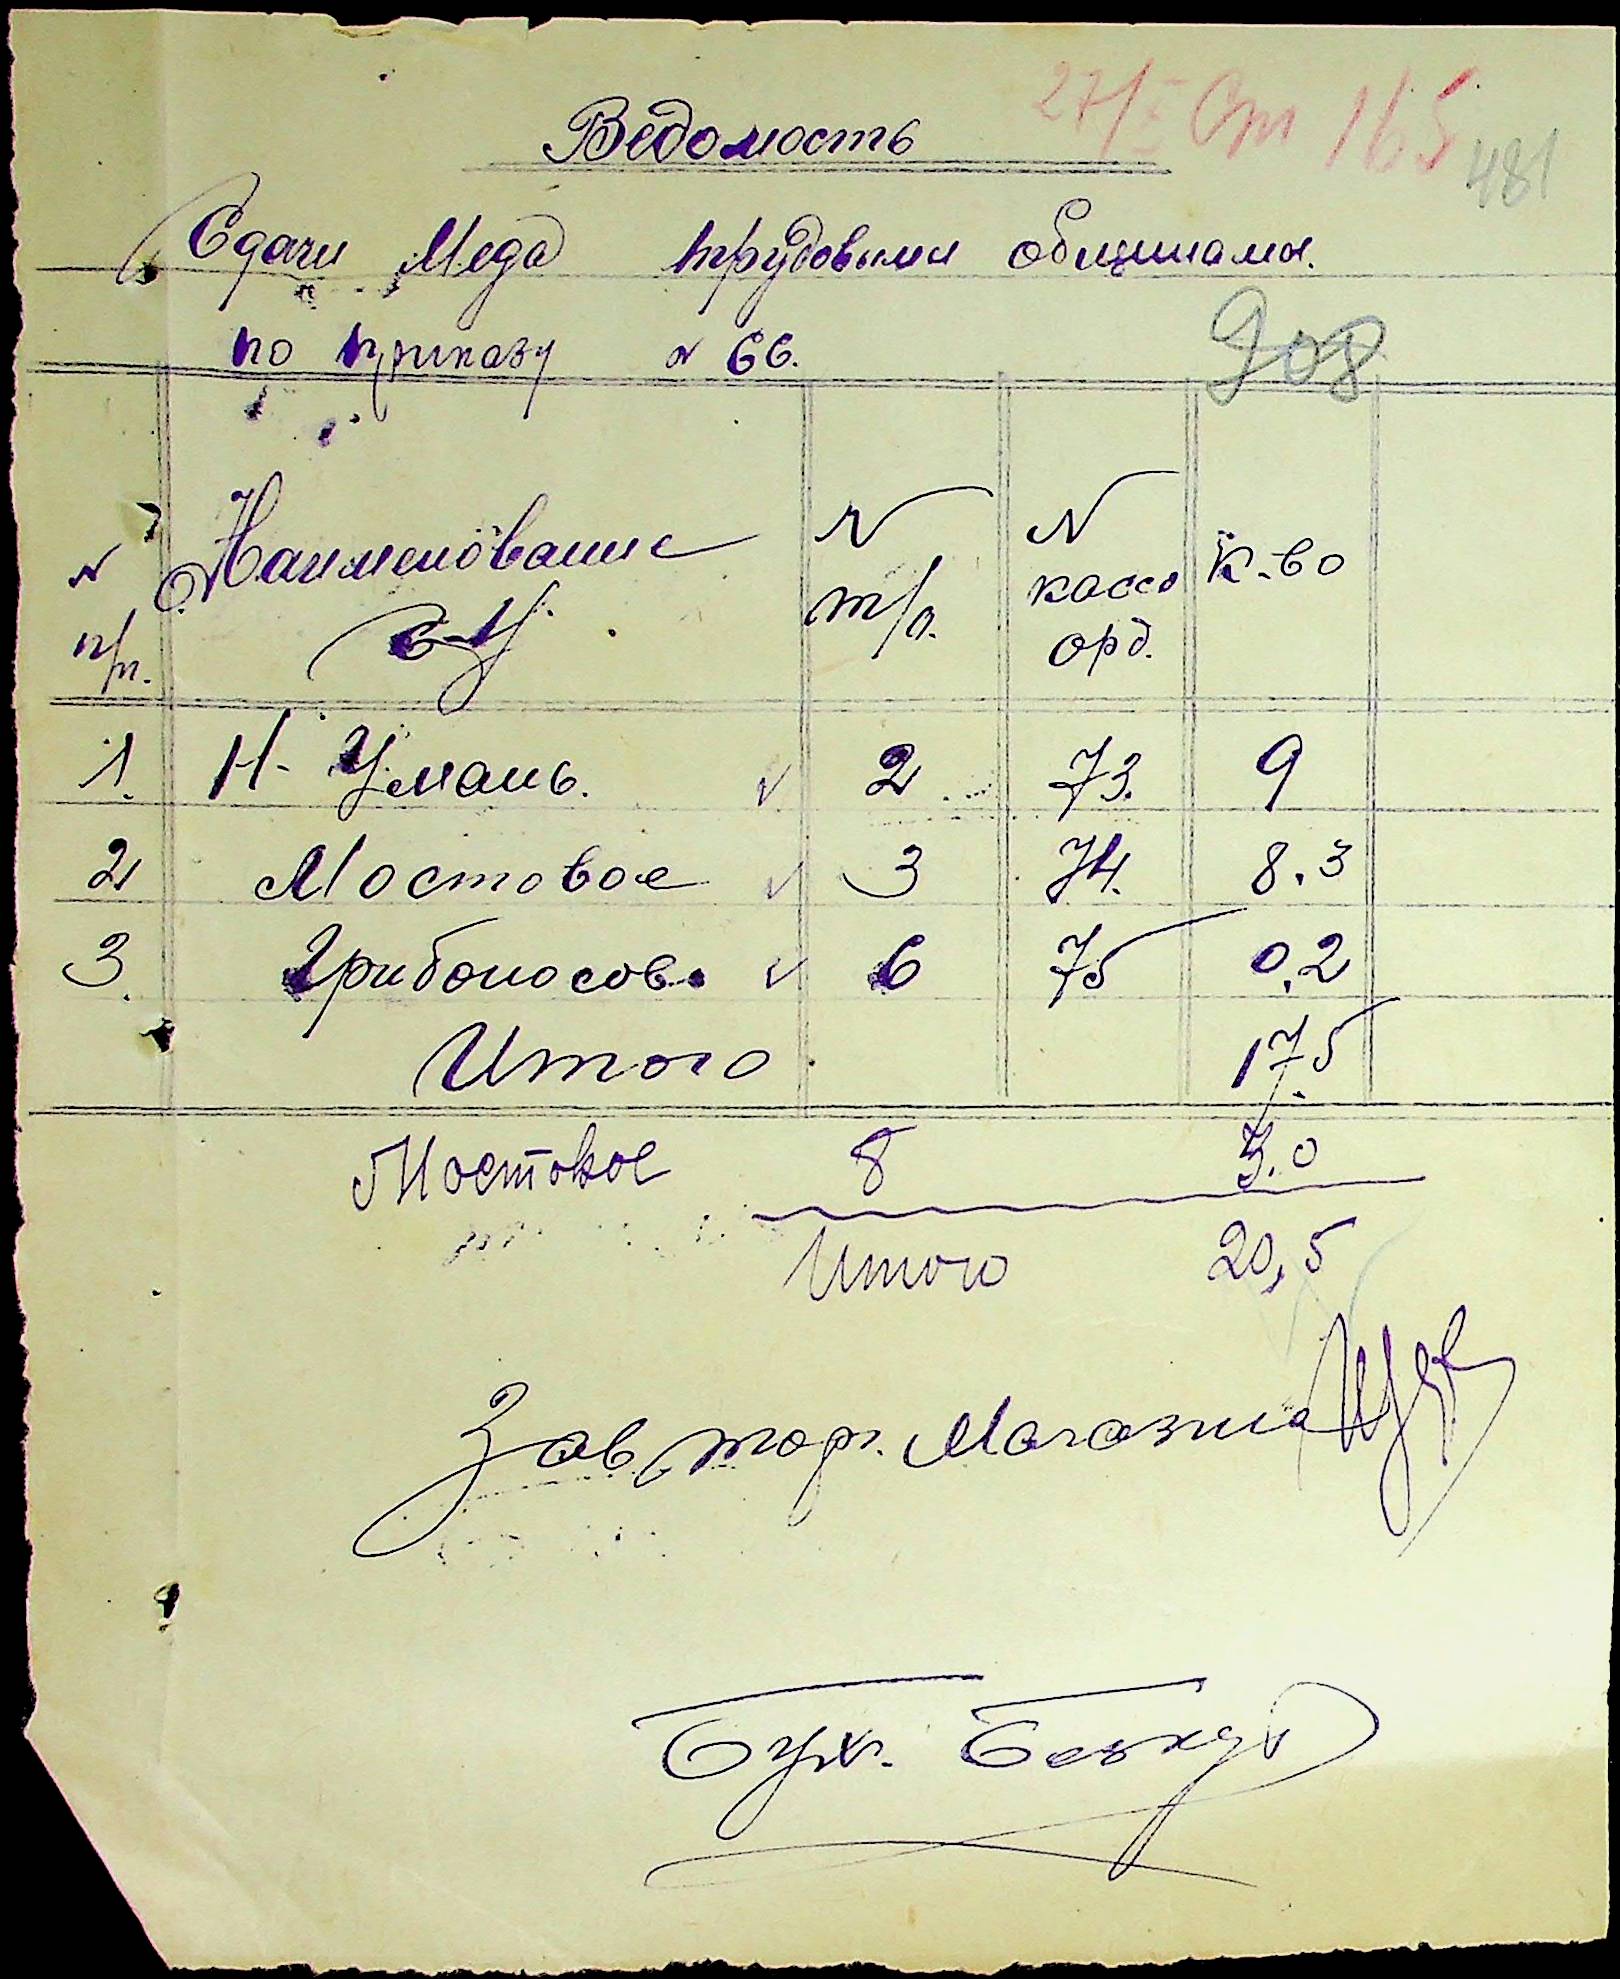 27/I От 165
481
Ведомость
Сдачи Меда трудовыми общинами.
по приказу № 66.
908
N п/п. Наименование С-Ц. N т/о. N кассо орд. К-во
1. Н-Умань. 2 73. 9
2 Мостовое 3 74. 8.3
3. Грибоносов. 6 75 0,2
Итого 17.5
Мостовое 8 3.0
Итого 20,5
Зав торг. Магазина
Бух.